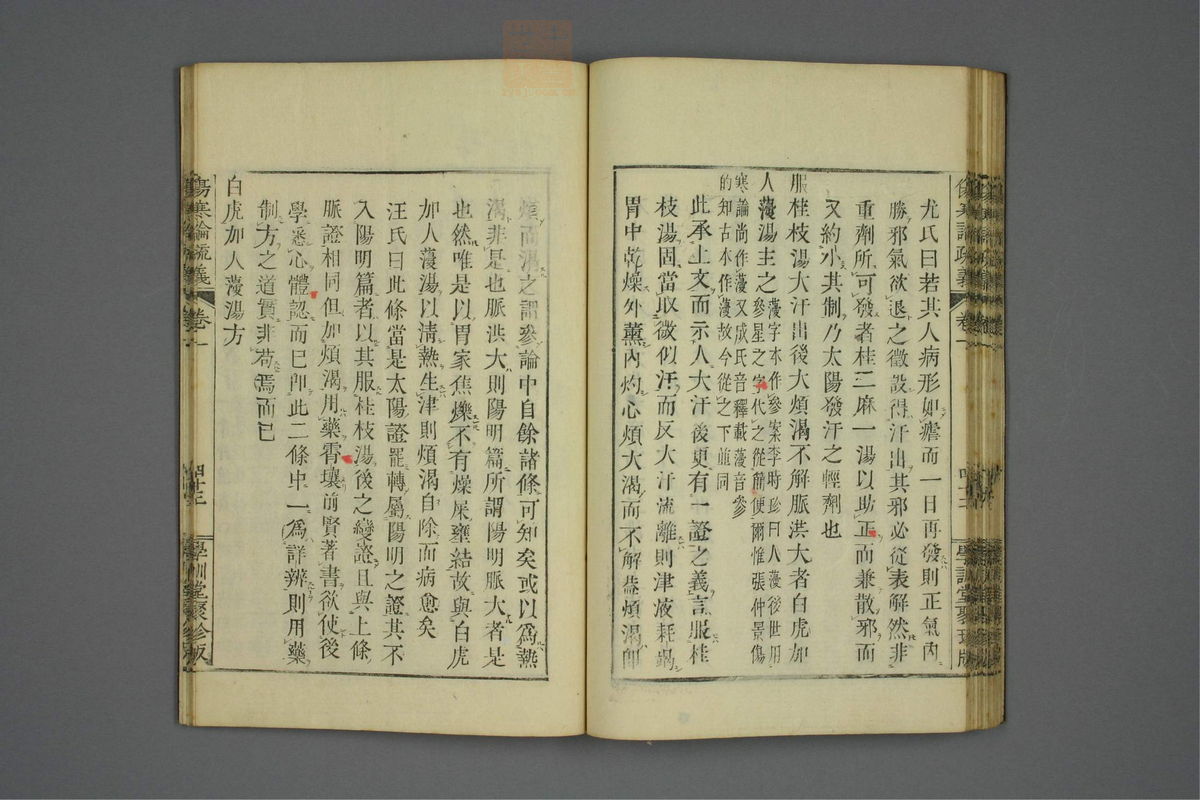 尤氏曰若其人病形如瘧而一日再發則正氣內
勝邪氣欲退之徵設得汗出其邪必從表解然非
重劑所可發者桂二麻一湯以助正而兼散邪而
又約小其制乃太陽發汗之輕劑也
服桂枝湯大汗出後大煩渴不解脈洪大者白虎加
人薓湯主之薓字本作參案李時珍曰人薓後世用
參星之字代之從簡便爾惟張仲景傷
寒論尚作薓又成氏音釋載薓音參
的知古本作薓故今從之下並同
此承上文而示人大汗後更有一證之義言服桂
枝湯固當取微似汗而反大汗流離則津液耗竭
胃中乾燥外薰內灼心煩大渴而不解蓋煩渴即
煩而渴之謂參論中自餘諸條可知矣或以爲熱
渴非是也脈洪大則陽明篇所謂陽明脈大者是
也然唯是以胃家焦爍不有燥屎壅結故與白虎
加人薓湯以清熱生津則煩渴自除而病愈矣
汪氏曰此條當是太陽證罷轉屬陽明之證其不
入陽明篇者以其服桂枝湯後之變證且與上條
脈證相同但加煩渴用藥霄壤前賢著書欲使後
學悉心體認而已即此二條中一爲詳辨則用藥
制方之道實非苟焉而已
白虎加人薓湯方
傷寒論疏義
卷一
四十二
學訓堂聚珍版